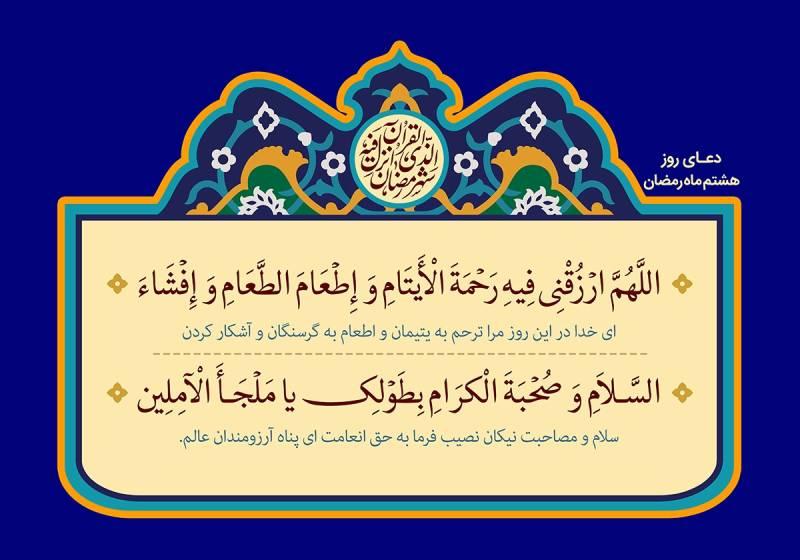 شهر رمضان الذی انزل فیه القرآن
دعـای روز
هشتم ماه رمضان
اللَّهُمَّ ارْزُقْنِی فِیهِ رَحْمَةَ الْأَیْتَامِ وَ إِطْعَامَ الطَّعَامِ وَ إِفْشَاءَ
ای خدا در این روز مرا ترحم به یتیمان و اطعام به گرسنگان و آشکار کردن
السَّلاَمِ وَ صُحْبَةَ الْکرَامِ بِطَوْلِکَ یا مَلْجَأَ الْآمِلِین
سلام و مصاحبت نیکان نصیب فرما به حق انعامت ای پناه آرزومندان عالم.